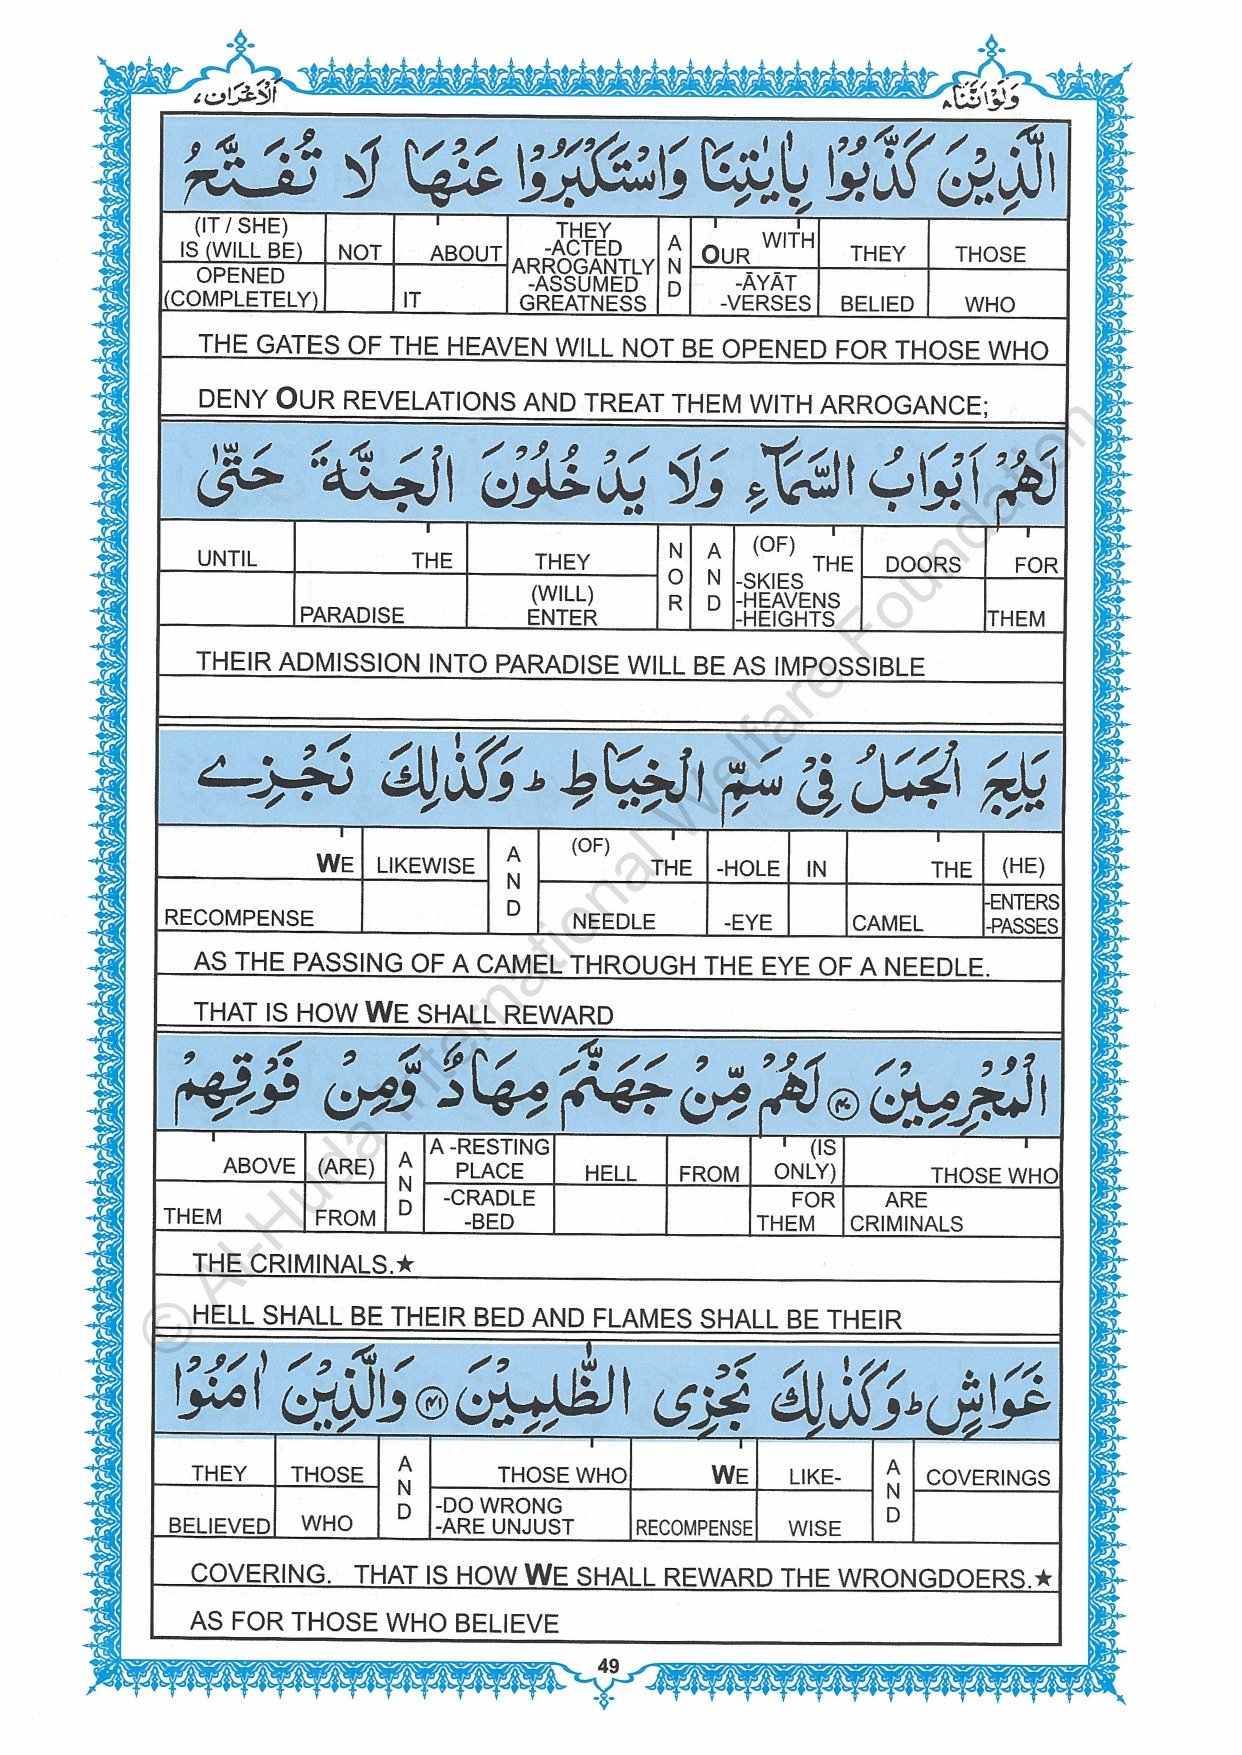 وَلَوْ اَنَّنَا ٨
اَلْاَعْرَاف ٧
الَّذِيْنَ كَذَّبُوْا بِاٰيٰتِنَا وَاسْتَكْبَرُوْا عَنْهَا لَا تُفَتَّحُ
(IT / SHE) IS (WILL BE) NOT ABOUT THEY -ACTED ARROGANTLY -ASSUMED GREATNESS AND OUR WITH THEY THOSE
OPENED (COMPLETELY) IT -ĀYĀT -VERSES BELIED WHO
THE GATES OF THE HEAVEN WILL NOT BE OPENED FOR THOSE WHO
DENY OUR REVELATIONS AND TREAT THEM WITH ARROGANCE;
لَهُمْ اَبْوَابُ السَّمَآءِ وَلَا يَدْخُلُوْنَ الْجَنَّةَ حَتّٰى
UNTIL THE THEY NOR AND (OF) THE DOORS FOR
PARADISE (WILL) ENTER -SKIES -HEAVENS -HEIGHTS THEM
THEIR ADMISSION INTO PARADISE WILL BE AS IMPOSSIBLE
يَلِجَ الْجَمَلُ فِيْ سَمِّ الْخِيَاطِ ؕ وَكَذٰلِكَ نَجْزِے
WE LIKEWISE AND (OF) THE -HOLE IN THE (HE)
RECOMPENSE NEEDLE -EYE CAMEL -ENTERS -PASSES
AS THE PASSING OF A CAMEL THROUGH THE EYE OF A NEEDLE.
THAT IS HOW WE SHALL REWARD
الْمُجْرِمِيْنَ ۴۰ لَهُمْ مِّنْ جَهَنَّمَ مِهَادٌ وَّمِنْ فَوْقِهِمْ
ABOVE (ARE) AND A -RESTING PLACE HELL FROM (IS ONLY) THOSE WHO
THEM FROM -CRADLE -BED FOR THEM ARE CRIMINALS
THE CRIMINALS.★
HELL SHALL BE THEIR BED AND FLAMES SHALL BE THEIR
غَوَاشٍ ؕ وَكَذٰلِكَ نَجْزِى الظّٰلِمِيْنَ ۴۱ وَالَّذِيْنَ اٰمَنُوْا
THEY THOSE AND THOSE WHO WE LIKE- AND COVERINGS
BELIEVED WHO -DO WRONG -ARE UNJUST RECOMPENSE WISE
COVERING. THAT IS HOW WE SHALL REWARD THE WRONGDOERS.★
AS FOR THOSE WHO BELIEVE
49
© Al-Huda International Welfare Foundation